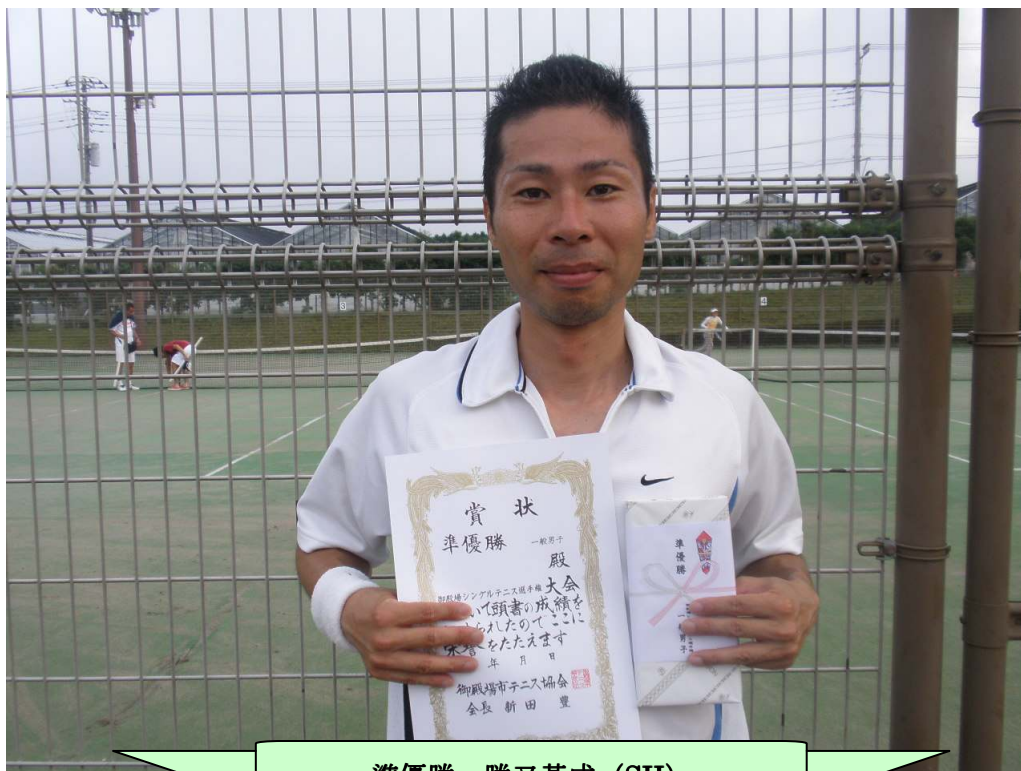 3
4
賞状
準優勝 一般男子
殿
御殿場シングルテニス選手権 大会
いて頭書の成績を
られたのでここに
栄誉をたたえます
年 月 日
御殿場市テニス協会
会長 新田 豊
準優勝
一般男子
準優勝